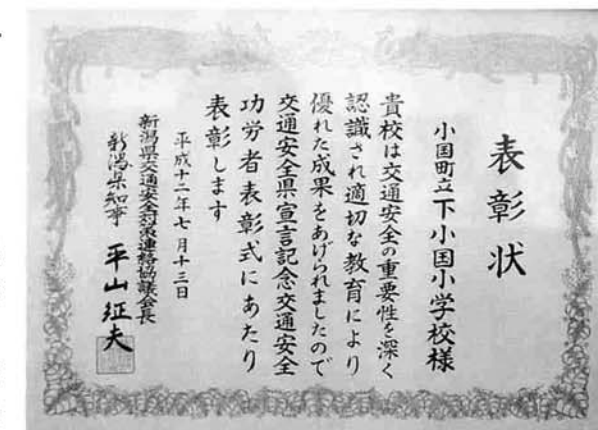 表彰状
小国町立下小国小学校様
貴校は交通安全の重要性を深く
認識され適切な教育により
優れた成果をあげられましたので
交通安全県宣言記念交通安全
功労者表彰式にあたり
表彰します
平成十二年七月十三日
新潟県交通安全対策連絡協議会長
新潟県知事 平山征夫